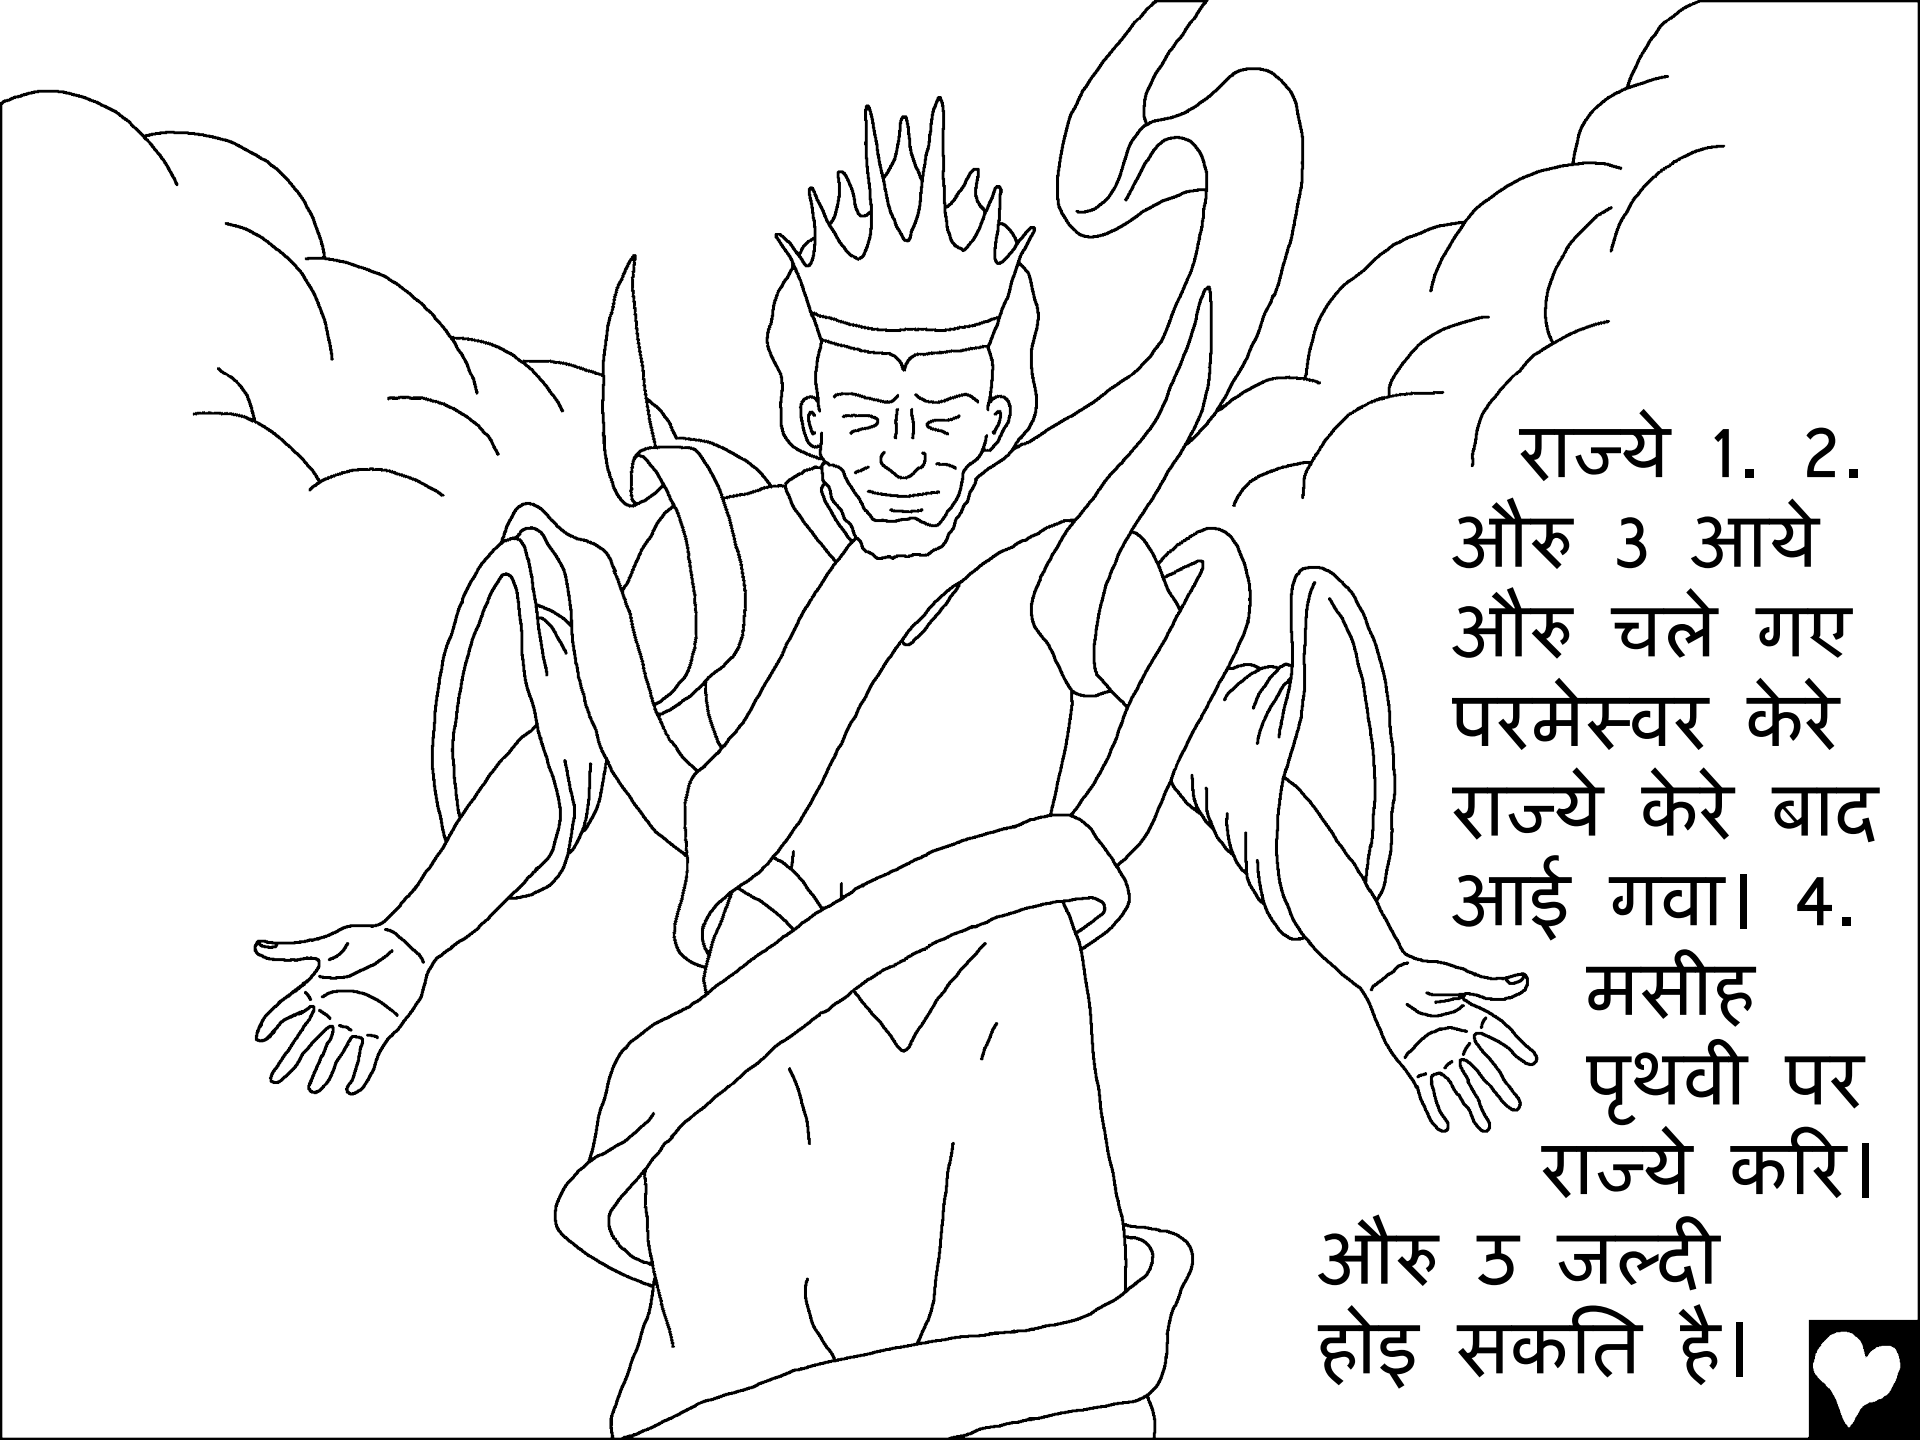 राज्ये 1. 2.
औरु 3 आये
औरु चले गए
परमेस्वर केरे
राज्ये केरे बाद
आई गवा। 4.
मसीह
पृथवी पर
राज्ये करि।
औरु उ जल्दी
होइ सकति है।